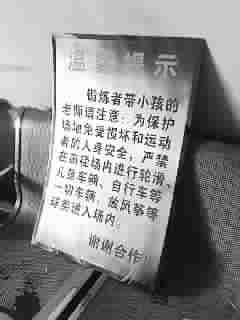 温馨提示
锻炼者带小孩的
老师请注意：为保护
场地免受损坏和运动
者的人身安全，严禁
在田径场内进行轮滑、
儿童车辆、自行车等
一切车辆、放风筝等
球类进入场内。
谢谢合作！